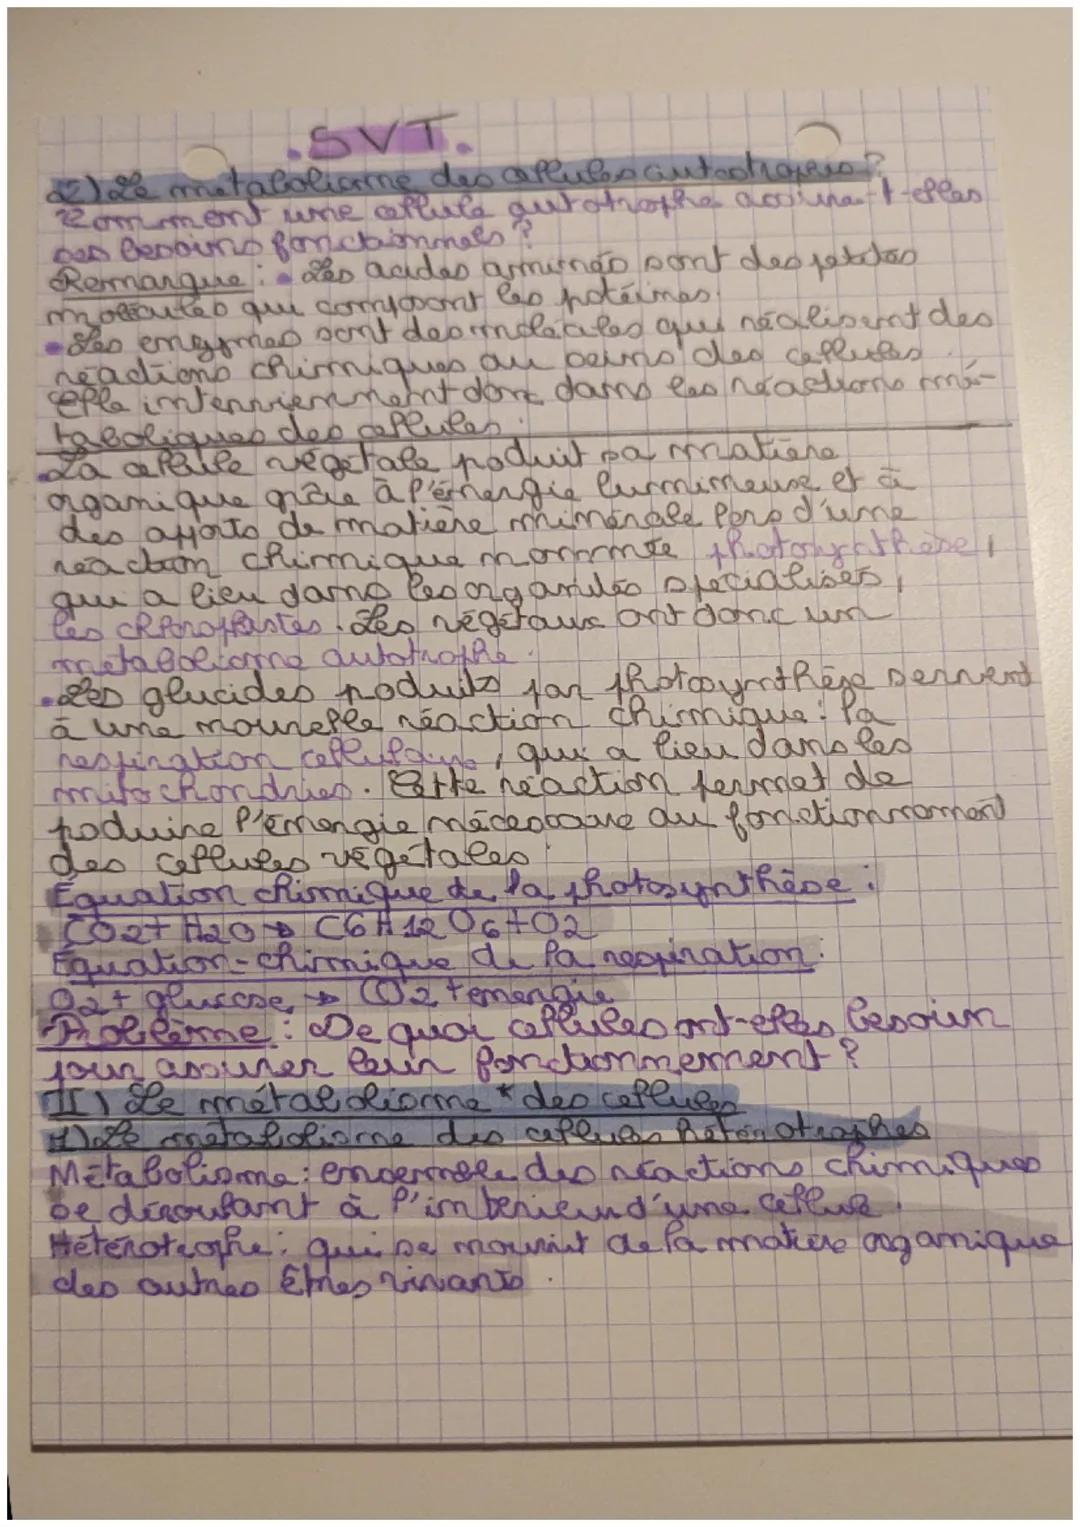 .SVT.
2) Le métabolisme des cellules autotrophes ?
Comment une cellule autotrophe assure-t-elles
ses besoins fonctionnels ?
Remarque : • Les acides aminés sont des petites
molécules qui composent les potéines.
• Les enzymes sont des molécules qui réalisent des
réactions chimiques au seins des cellules.
Elle interviennent donc dans les réactions mé-
taboliques des cellules.
• La cellule végétale poduit sa matière
organique grâce à l'énergie lumineuse et à
des apports de matière minérale lors d'une
réaction chimique nommée photosynthèse,
qui a lieu dans les organites spécialisés,
les chloroplastes. Les végétaux ont donc un
métabolisme autotrophe.
• Les glucides poduits par photosynthèse servent
à une nouvelle réaction chimique : la
respiration cellulaire, qui a lieu dans les
mitochondries. Cette réaction permet de
poduire l'énergie nécessaire au fonctionnement
des cellules végétales.
Équation chimique de la photosynthèse :
CO2 + H2O → C6H12O6+O2
Équation-chimique de la respiration :
O2 + glucose → CO2 + énergie
Problème : De quoi cellules ont-elles besoin
pour assurer leur fonctionnement ?
II) Le métabolisme * des cellules
1) Le métabolisme des cellules hétérotrophes
Métabolisme : ensemble des réactions chimiques
se déroulant à l'intérieur d'une cellule.
Hétérotrophe : qui se nourrit de la matière organique
des autres êtres vivants.